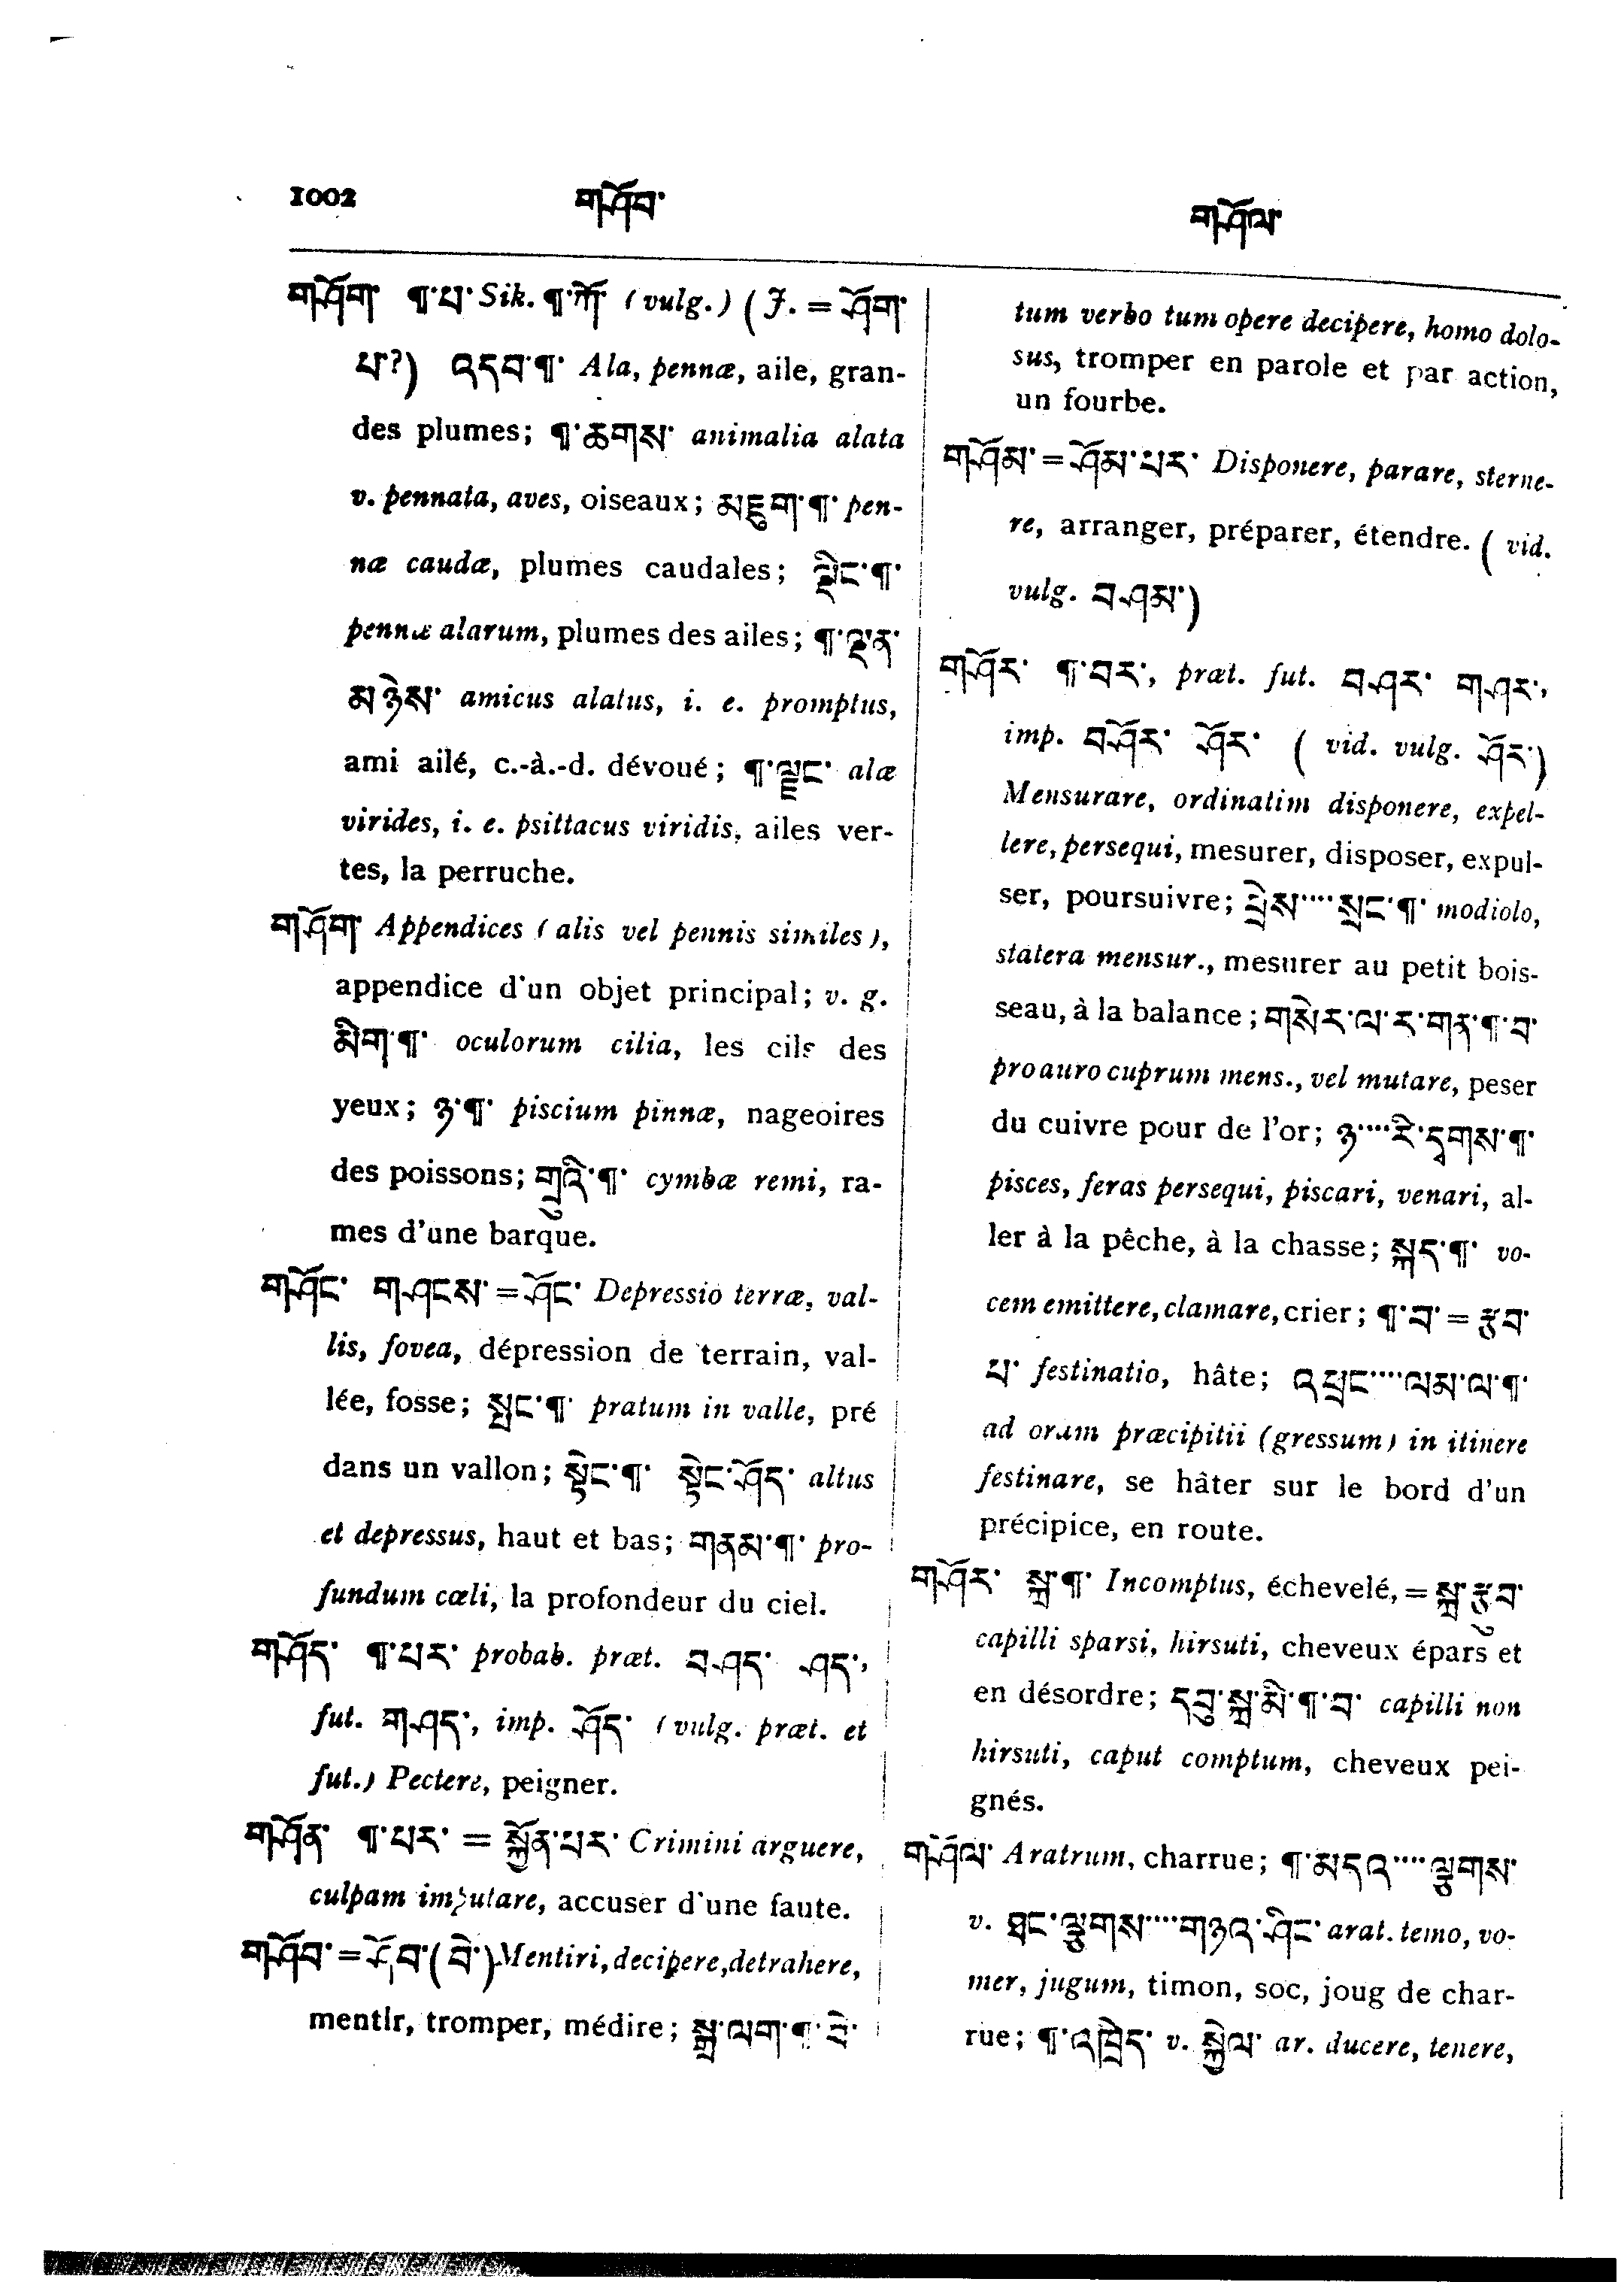 1002 གཤོབ་ གཤོལ་
གཤོག་ ¶་པ་ Sik. ¶་ཀོ་ (vulg.) (J. = ཤོག་
པ་?) འདབ་¶་ Ala, pennæ, aile, gran-
des plumes; ¶་ཆགས་ animalia alata
v. pennata, aves, oiseaux; མཇུག་¶་ pen-
næ caudæ, plumes caudales; ལྡིང་¶་
pennæ alarum, plumes des ailes; ¶་ལྡན་
མཉེས་ amicus alatus, i. e. promptus,
ami ailé, c.-à.-d. dévoué; ¶་ལྗང་ alæ
virides, i. e. psittacus viridis, ailes ver-
tes, la perruche.
གཤོག་ Appendices (alis vel pennis similes),
appendice d'un objet principal; v. g.
མིག་¶་ oculorum cilia, les cils des
yeux; ཉ་¶་ piscium pinnæ, nageoires
des poissons; གྲུའི་¶་ cymbæ remi, ra-
mes d'une barque.
གཤོང་ གཤངས་ = ཤོང་ Depressio terræ, val-
lis, fovea, dépression de terrain, val-
lée, fosse; སྤང་¶་ pratum in valle, pré
dans un vallon; སྟེང་¶་ སྟེང་ཤོད་ altus
et depressus, haut et bas; གནམ་¶་ pro-
fundum cœli, la profondeur du ciel.
གཤོད་ ¶་པར་ probab. præt. བཤད་ ཤད་,
fut. གཤད་, imp. ཤོད་ (vulg. præt. et
fut.) Pectere, peigner.
གཤོན་ ¶་པར་ = སྐྱོན་པར་ Crimini arguere,
culpam imputare, accuser d'une faute.
གཤོབ་ = ཤོབ་ (བེ་) Mentiri, decipere, detrahere,
mentir, tromper, médire; སྒྲ་ལག་¶་བེ་
tum verbo tum opere decipere, homo dolo-
sus, tromper en parole et par action,
un fourbe.
གཤོམ་ = ཤོམ་པར་ Disponere, parare, sterne-
re, arranger, préparer, étendre. (vid.
vulg. བཤམ་)
གཤོར་ ¶་བར་, præt. fut. བཤར་ གཤར་,
imp. བཤོར་ ཤོར་ (vid. vulg. ཤོར་)
Mensurare, ordinatim disponere, expel-
lere, persequi, mesurer, disposer, expul-
ser, poursuivre; བྲེས་....སྲང་¶་ modiolo,
statera mensur., mesurer au petit bois-
seau, à la balance; གསེར་ལ་ར་གན་¶་བ་
pro auro cuprum mens., vel mutare, peser
du cuivre pour de l'or; ཉ་....རི་དྭགས་¶་
pisces, feras persequi, piscari, venari, al-
ler à la pêche, à la chasse; སྐད་¶་ vo-
cem emittere, clamare, crier; ¶་བ་ = རྩུབ་
པ་ festinatio, hâte; འཕྲང་....ལམ་ལ་¶་
ad oram præcipitii (gressum) in itinere
festinare, se hâter sur le bord d'un
précipice, en route.
གཤོར་ སྐྲ་¶་ Incomptus, échevelé, = སྐྲ་རྩུབ་
capilli sparsi, hirsuti, cheveux épars et
en désordre; དབུ་སྐྲ་མི་¶་བ་ capilli non
hirsuti, caput comptum, cheveux pei-
gnés.
གཤོལ་ Aratrum, charrue; ¶་མདའ་....ལྕགས་
v. ཐང་ལྕགས་....གཉའ་ཤིང་ arat. temo, vo-
mer, jugum, timon, soc, joug de char-
rue; ¶་འཁྲིད་ v. སྐྱེལ་ ar. ducere, tenere,